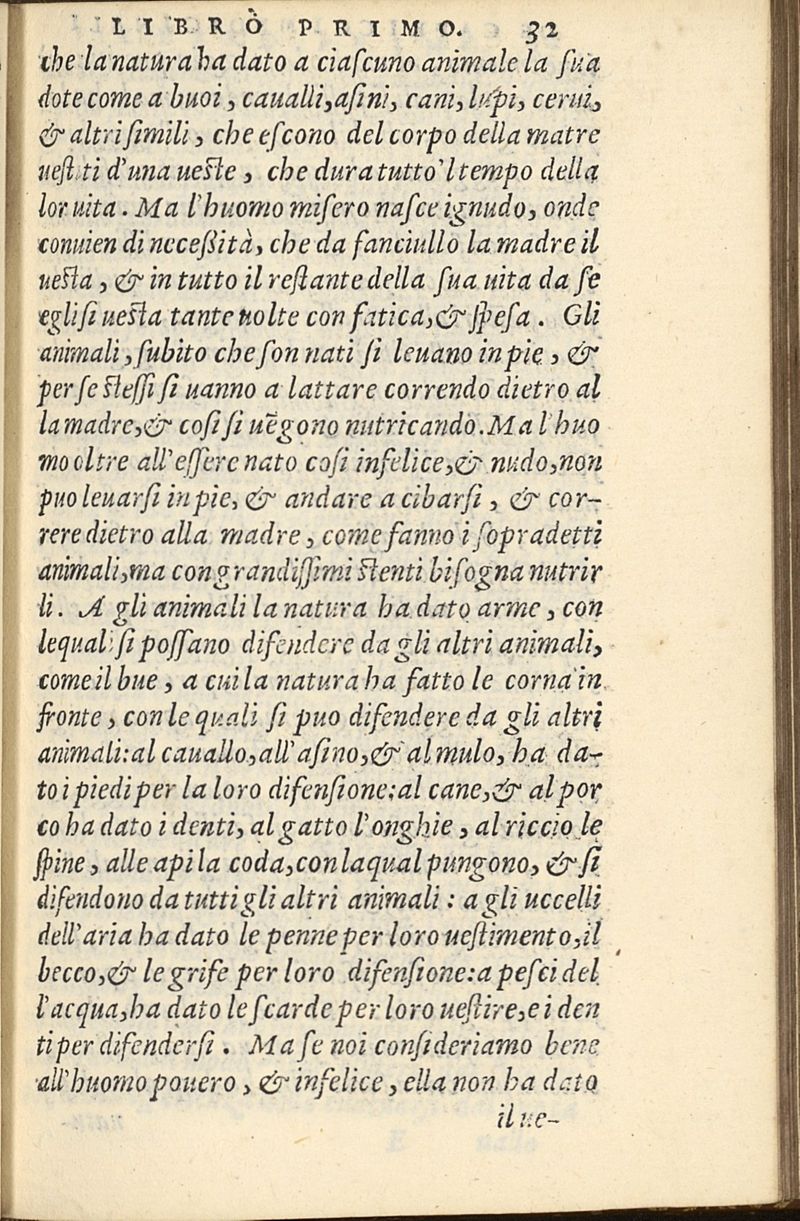 LIBRÒ PRIMO. 32
che la natura ha dato a ciaſcuno animale la ſua
dote come a buoi, caualli, aſini, cani, lupi, cerui,
& altri ſimili, che eſcono del corpo della matre
ueſtiti d'una ueſte, che dura tutto'l tempo della
lor uita. Ma l'huomo miſero naſce ignudo, onde
conuien di neceßità, che da fanciullo la madre il
ueſta, & in tutto il reſtante della ſua uita da ſe
egli ſi ueſta tante uolte con fatica, & ſpeſa. Gli
animali, ſubito che ſon nati ſi leuano in pie, &
per ſe ſteſſi ſi uanno a lattare correndo dietro al
la madre, & coſi ſi uẽgono nutricando. Ma l'huo
mo oltre all'eſſere nato coſi infelice, & nudo, non
puo leuarſi in pie, & andare a cibarſi, & cor-
rere dietro alla madre, come fanno i ſopradetti
animali, ma con grandiſſimi ſtenti biſogna nutrir
li. A gli animali la natura ha dato arme, con
lequali ſi poſſano difendere da gli altri animali,
come il bue, a cui la natura ha fatto le corna in
fronte, con le quali ſi puo difendere da gli altri
animali: al cauallo, all'aſino, & al mulo, ha da-
to i piedi per la loro difenſione: al cane, & al por
co ha dato i denti, al gatto l'onghie, al riccio le
ſpine, alle api la coda, con laqual pungono, & ſi
difendono da tutti gli altri animali: a gli uccelli
dell'aria ha dato le penne per loro ueſtimento, il
becco, & le grife per loro difenſione: a peſci del
l'acqua, ha dato le ſcarde per loro ueſtire, e i den
ti per difenderſi. Ma ſe noi conſideriamo bene
all'huomo pouero, & infelice, ella non ha dato
il ue-